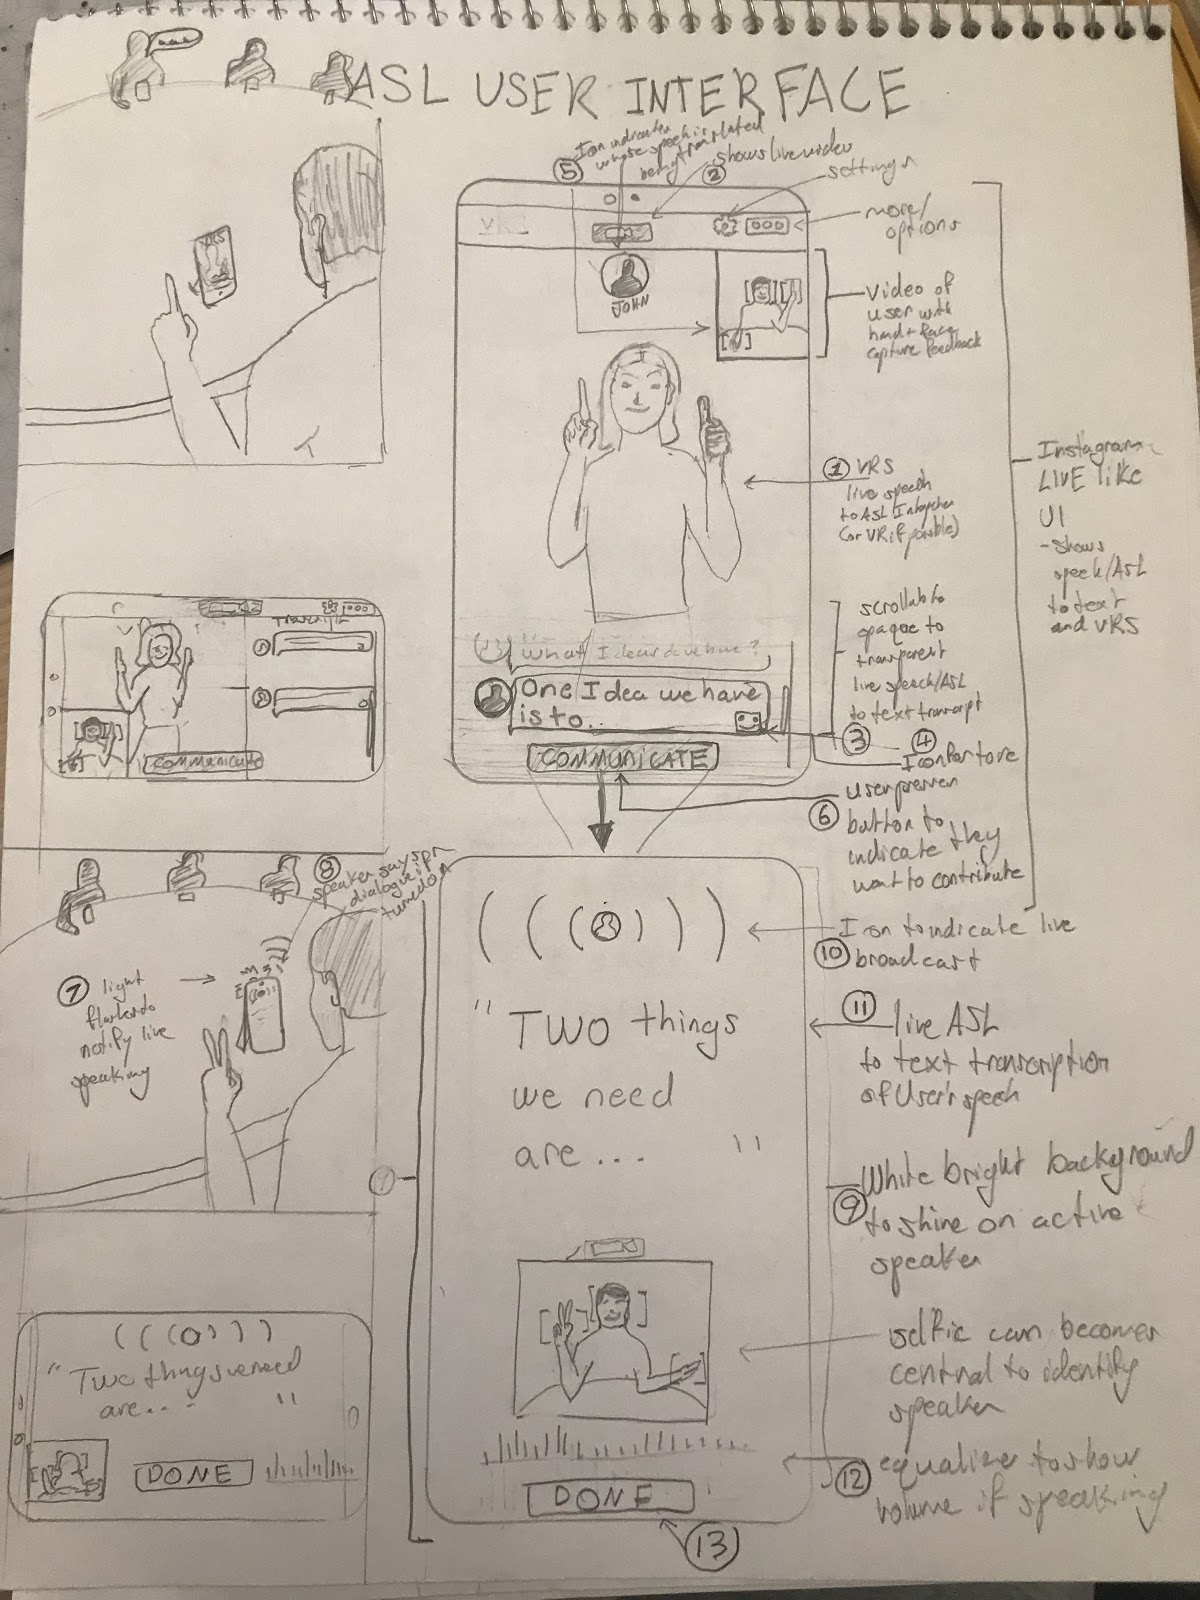 ASL USER INTERFACE
5 Icon indicates
whose speech is
being translated
2 shows live video
settings
more/
options
VRS
JOHN
Video of
user with
hand + face
capture feedback
1 VRS
live speech
to ASL
(or VR if possible)
Instagram
LIVE like
UI
- shows
speech/ASL
to text
and VRS
scrollable
opaque to
transparent
live speech/ASL
to text transcript
3
4
Icon
What Ideas do we have?
One Idea we have
is to..
COMMUNICATE
6 user presses
button to
indicate they
want to contribute
Transcript
COMMUNICATE
8
speaker says
dialogue if
turned on
7 light
notify live
speaking
10 Icon to indicate live
broadcast
"Two things
we need
are... "
11 live ASL
to text transcription
of User's speech
9 White bright background
to shine on active
speaker
selfie can become
central to identify
speaker
12 equalizer to show
volume if speaking
DONE
13
(((o)))
"Two things we need
are... "
DONE